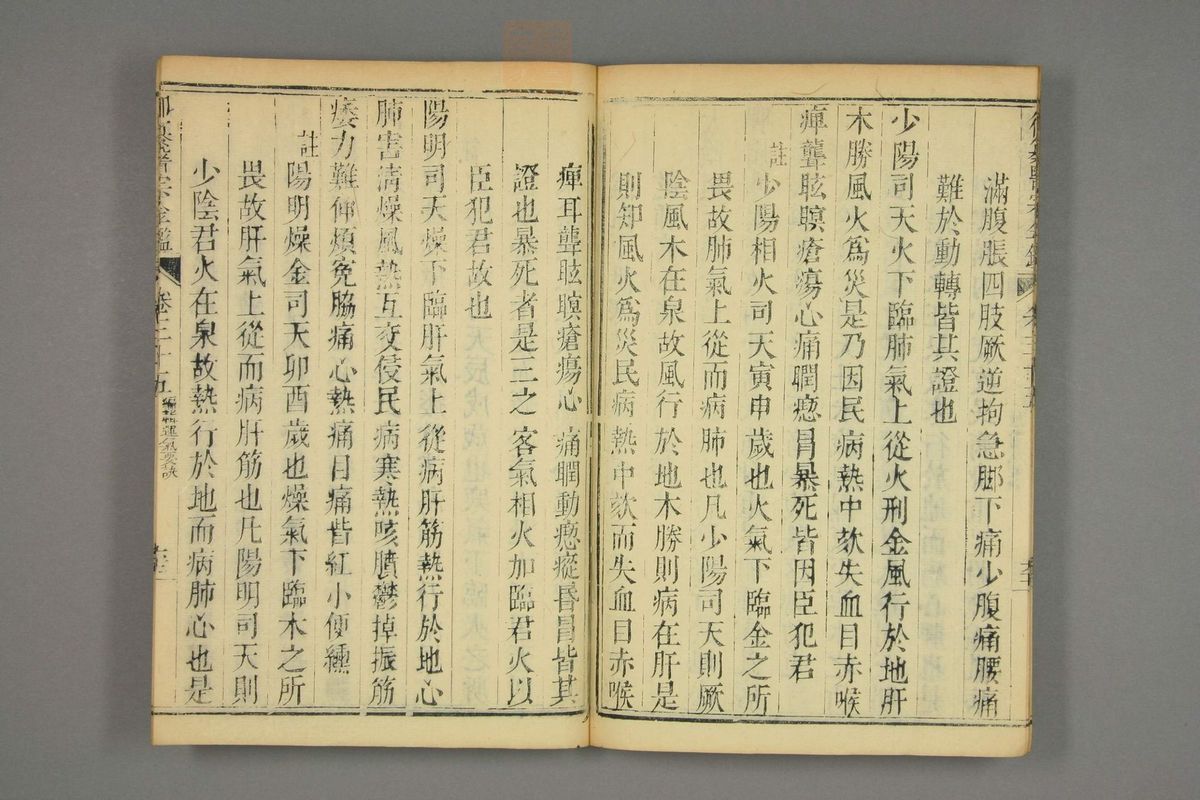 滿腹脹四肢厥逆拘急脚下痛少腹痛腰痛
難於動轉皆其證也
少陽司天火下臨肺氣上從火刑金風行於地肝
木勝風火爲災是乃因民病熱中欬失血目赤喉
痺聾眩瞑瘡瘍心痛瞤瘛冒暴死皆因臣犯君
註
少陽相火司天寅申歲也火氣下臨金之所
畏故肺氣上從而病肺也凡少陽司天則厥
陰風木在泉故風行於地木勝則病在肝是
則知風火爲災民病熱中欬而失血目赤喉
痺耳聾眩瞑瘡瘍心痛瞤動瘛瘲昬冒皆其
證也暴死者是三之客氣相火加臨君火以
臣犯君故也
陽明司天燥下臨肝氣上從病肝筋熱行於地心
肺害淸燥風熱互交侵民病寒熱咳膹鬱掉振筋
痿力難伸煩寃脇痛心熱痛目痛眥紅小便纁
註
陽明燥金司天卯酉歲也燥氣下臨木之所
畏故肝氣上從而病肝筋也凡陽明司天則
少陰君火在泉故熱行於地而病肺心也是
御纂醫宗金鑑
卷三十五
編輯運氣要訣